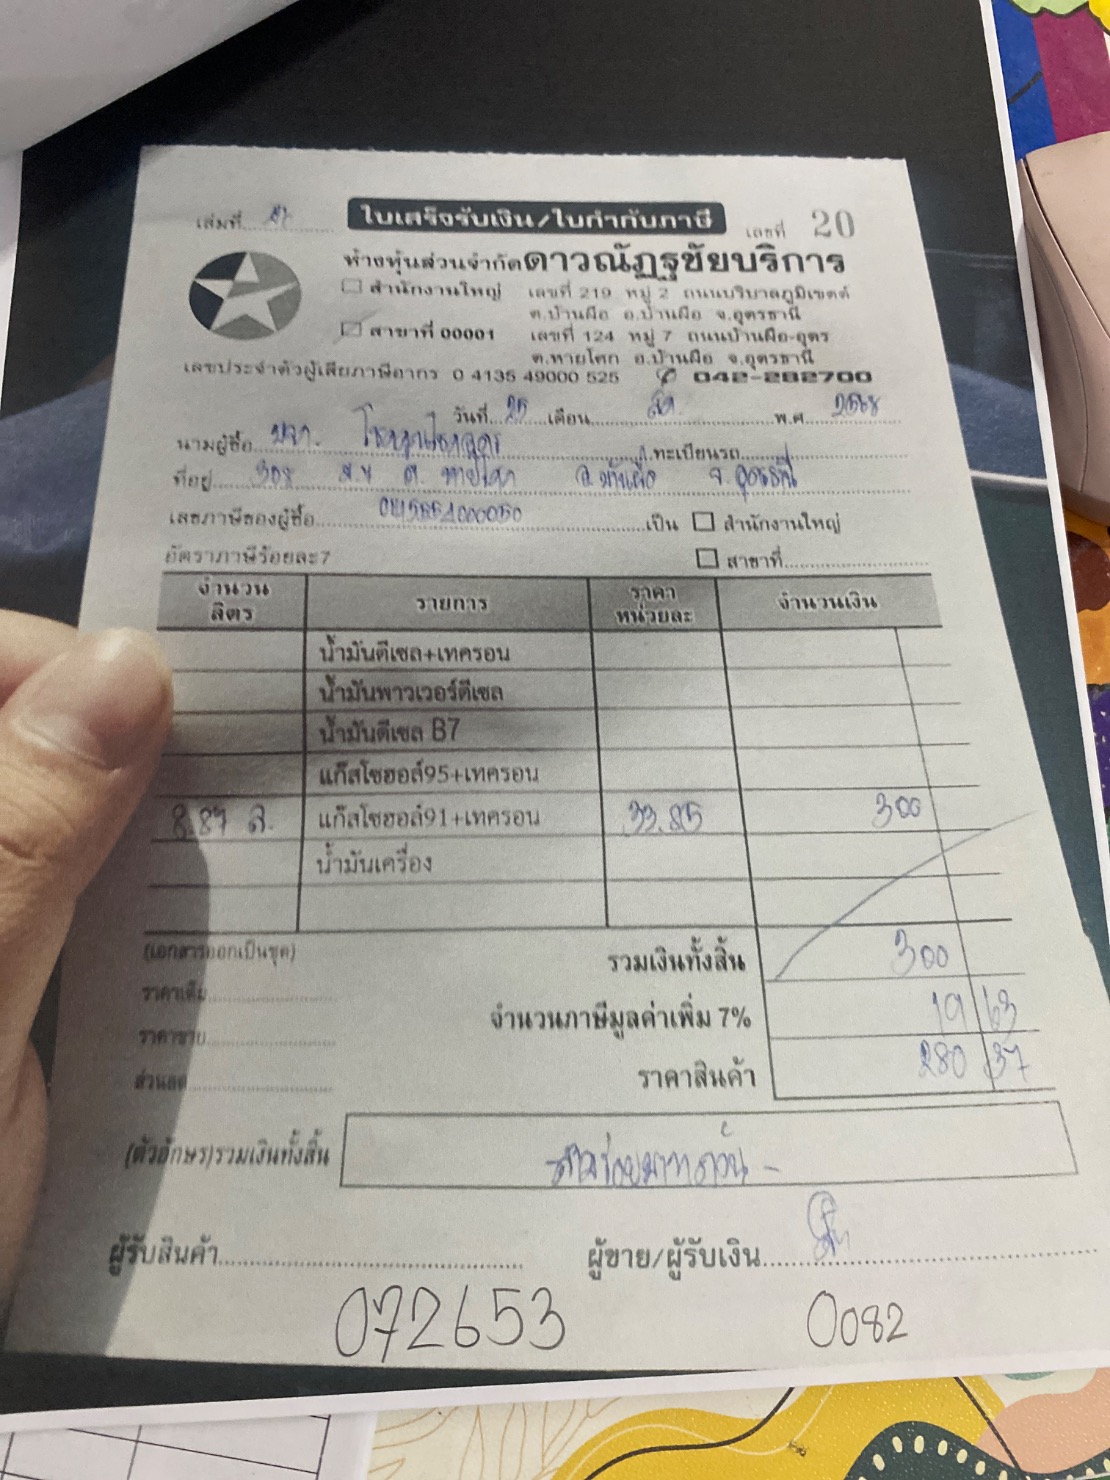 เล่มที่
ใบเสร็จรับเงิน/ใบกำกับภาษี
เลขที่ 20
ห้างหุ้นส่วนจำกัดดาวณัฏฐชัยบริการ
สำนักงานใหญ่ เลขที่ 219 หมู่ 2 ถนนบริบาลภูมิเขตต์
ต.บ้านผือ อ.บ้านผือ จ.อุดรธานี
สาขาที่ 00001 เลขที่ 124 หมู่ 7 ถนนบ้านผือ-อุดร
ต.หายโศก อ.บ้านผือ จ.อุดรธานี
เลขประจำตัวผู้เสียภาษีอากร 0 4135 49000 525 042-282700
วันที่ 25 เดือน พ.ศ. 2568
นามผู้ซื้อ บจก. ทะเบียนรถ
ที่อยู่ 308 ต. หายโศก อ.บ้านผือ จ.อุดรธานี
เลขภาษีของผู้ซื้อ เป็น สำนักงานใหญ่
อัตราภาษีร้อยละ7 สาขาที่
จำนวน ลิตร รายการ ราคา หน่วยละ จำนวนเงิน
น้ำมันดีเซล+เทครอน
น้ำมันพาวเวอร์ดีเซล
น้ำมันดีเซล B7
แก๊สโซฮอล์95+เทครอน
8.87 ล. แก๊สโซฮอล์91+เทครอน 33.85 300
น้ำมันเครื่อง
(เอกสารออกเป็นชุด) รวมเงินทั้งสิ้น 300
ราคาเต็ม
จำนวนภาษีมูลค่าเพิ่ม 7% 19 63
ราคาขาย
ราคาสินค้า 280 37
ส่วนลด
(ตัวอักษร)รวมเงินทั้งสิ้น -สามร้อยบาทถ้วน-
ผู้รับสินค้า ผู้ขาย/ผู้รับเงิน
072653 0082